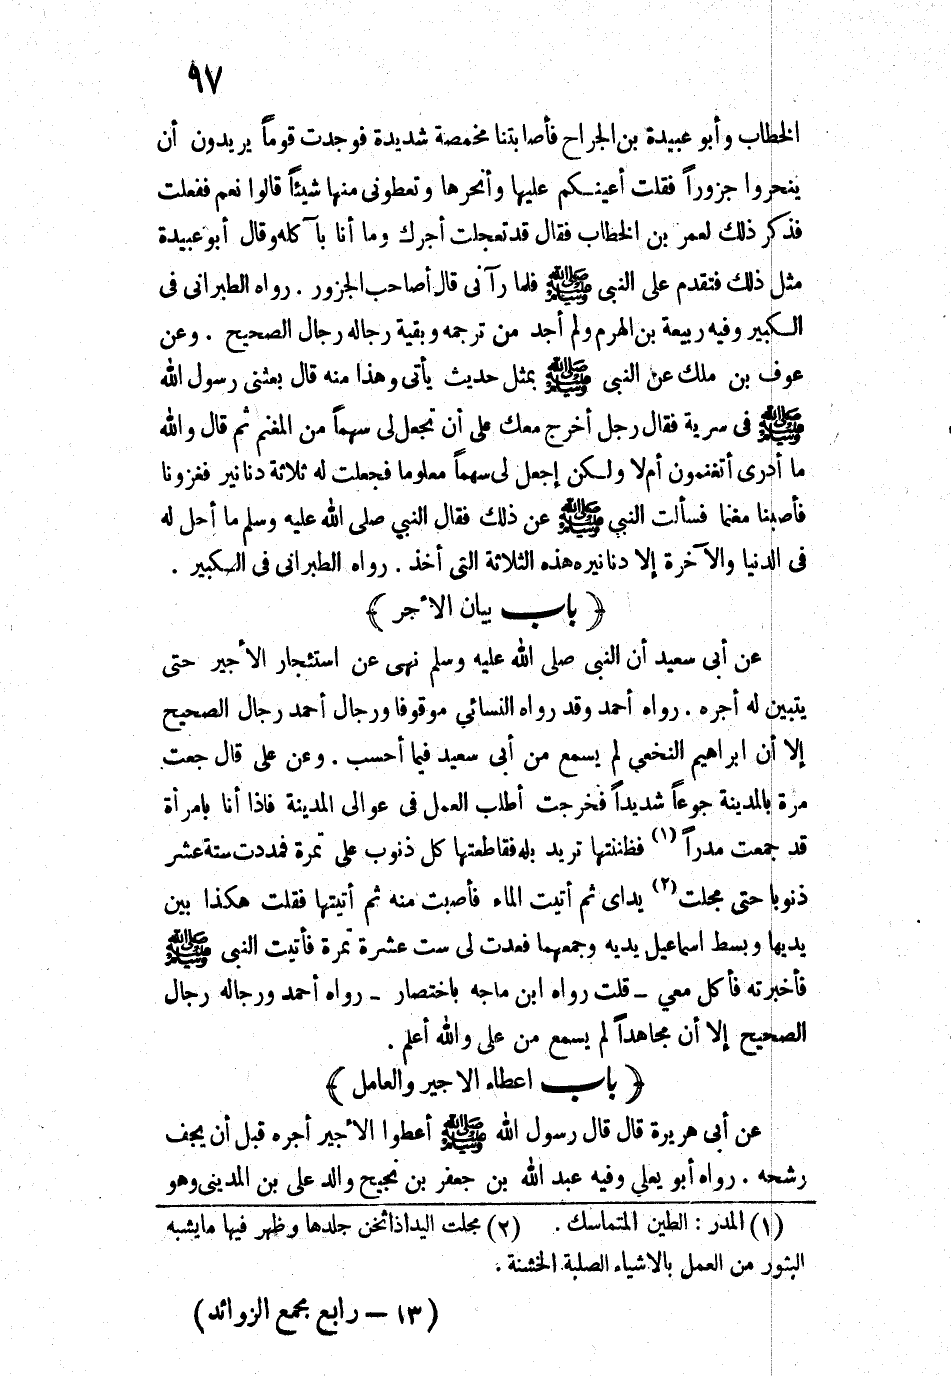 ٩٧
الخطاب وأبو عبيدة بن الجراح فأصابتنا مخمصة شديدة فوجدت قوماً يريدون أن
ينحروا جزوراً فقلت أعينكم عليها وأنحرها وتعطونى منها شيئاً قالوا نعم ففعلت
فذكر ذلك لعمر بن الخطاب فقال قد تعجلت أجرك وما أنا بآكله وقال أبو عبيدة
مثل ذلك فتقدم على النبى ﷺ فلما رآنى قال أصاحب الجزور . رواه الطبرانى فى
الكبير وفيه ربيعة بن الهرم ولم أجد من ترجمه وبقية رجاله رجال الصحيح . وعن
عوف بن ملك عن النبى ﷺ بمثل حديث يأتى وهذا منه قال بعثنى رسول الله
ﷺ فى سرية فقال رجل أخرج معك على أن تجعل لى سهماً من المغنم ثم قال والله
ما أدرى أتغنمون أم لا ولكن إجعل لى سهماً معلوما فجعلت له ثلاثة دنانير فغزونا
فأصبنا مغنما فسألت النبي ﷺ عن ذلك فقال النبي صلى الله عليه وسلم ما أحل له
فى الدنيا والآخرة إلا دنانيره هذه الثلاثة التى أخذ . رواه الطبرانى فى الكبير .
﴿ باب بيان الأجر ﴾
عن أبى سعيد أن النبى صلى الله عليه وسلم نهى عن استئجار الأجير حتى
يتبين له أجره . رواه أحمد وقد رواه النسائي موقوفا ورجال أحمد رجال الصحيح
إلا أن ابراهيم النخعي لم يسمع من أبى سعيد فيما أحسب . وعن على قال جعت
مرة بالمدينة جوعاً شديداً فخرجت أطلب العمل فى عوالى المدينة فاذا أنا بامرأة
قد جمعت مدراً (١) فظننتها تريد بله فقاطعتها كل ذنوب على تمرة فمددت ستة عشر
ذنوبا حتى مجلت (٢) يداى ثم أتيت الماء فأصبت منه ثم أتيتها فقلت هكذا بين
يديها وبسط اسماعيل يديه وجمعهما فعدت لى ست عشرة تمرة فأتيت النبى ﷺ
فأخبرته فأكل معي - قلت رواه ابن ماجه باختصار - رواه أحمد ورجاله رجال
الصحيح إلا أن مجاهداً لم يسمع من على والله أعلم .
﴿ باب اعطاء الاجير والعامل ﴾
عن أبى هريرة قال قال رسول الله ﷺ أعطوا الأجير أجره قبل أن يجف
رشحه . رواه أبو يعلي وفيه عبد الله بن جعفر بن نجيح والد على بن المدينى وهو
(١) المدر : الطين المتماسك . (٢) مجلت اليد اذا ثخن جلدها وظهر فيها ما يشبه
البثور من العمل بالاشياء الصلبة الخشنة .
(١٣ - رابع مجمع الزوائد)